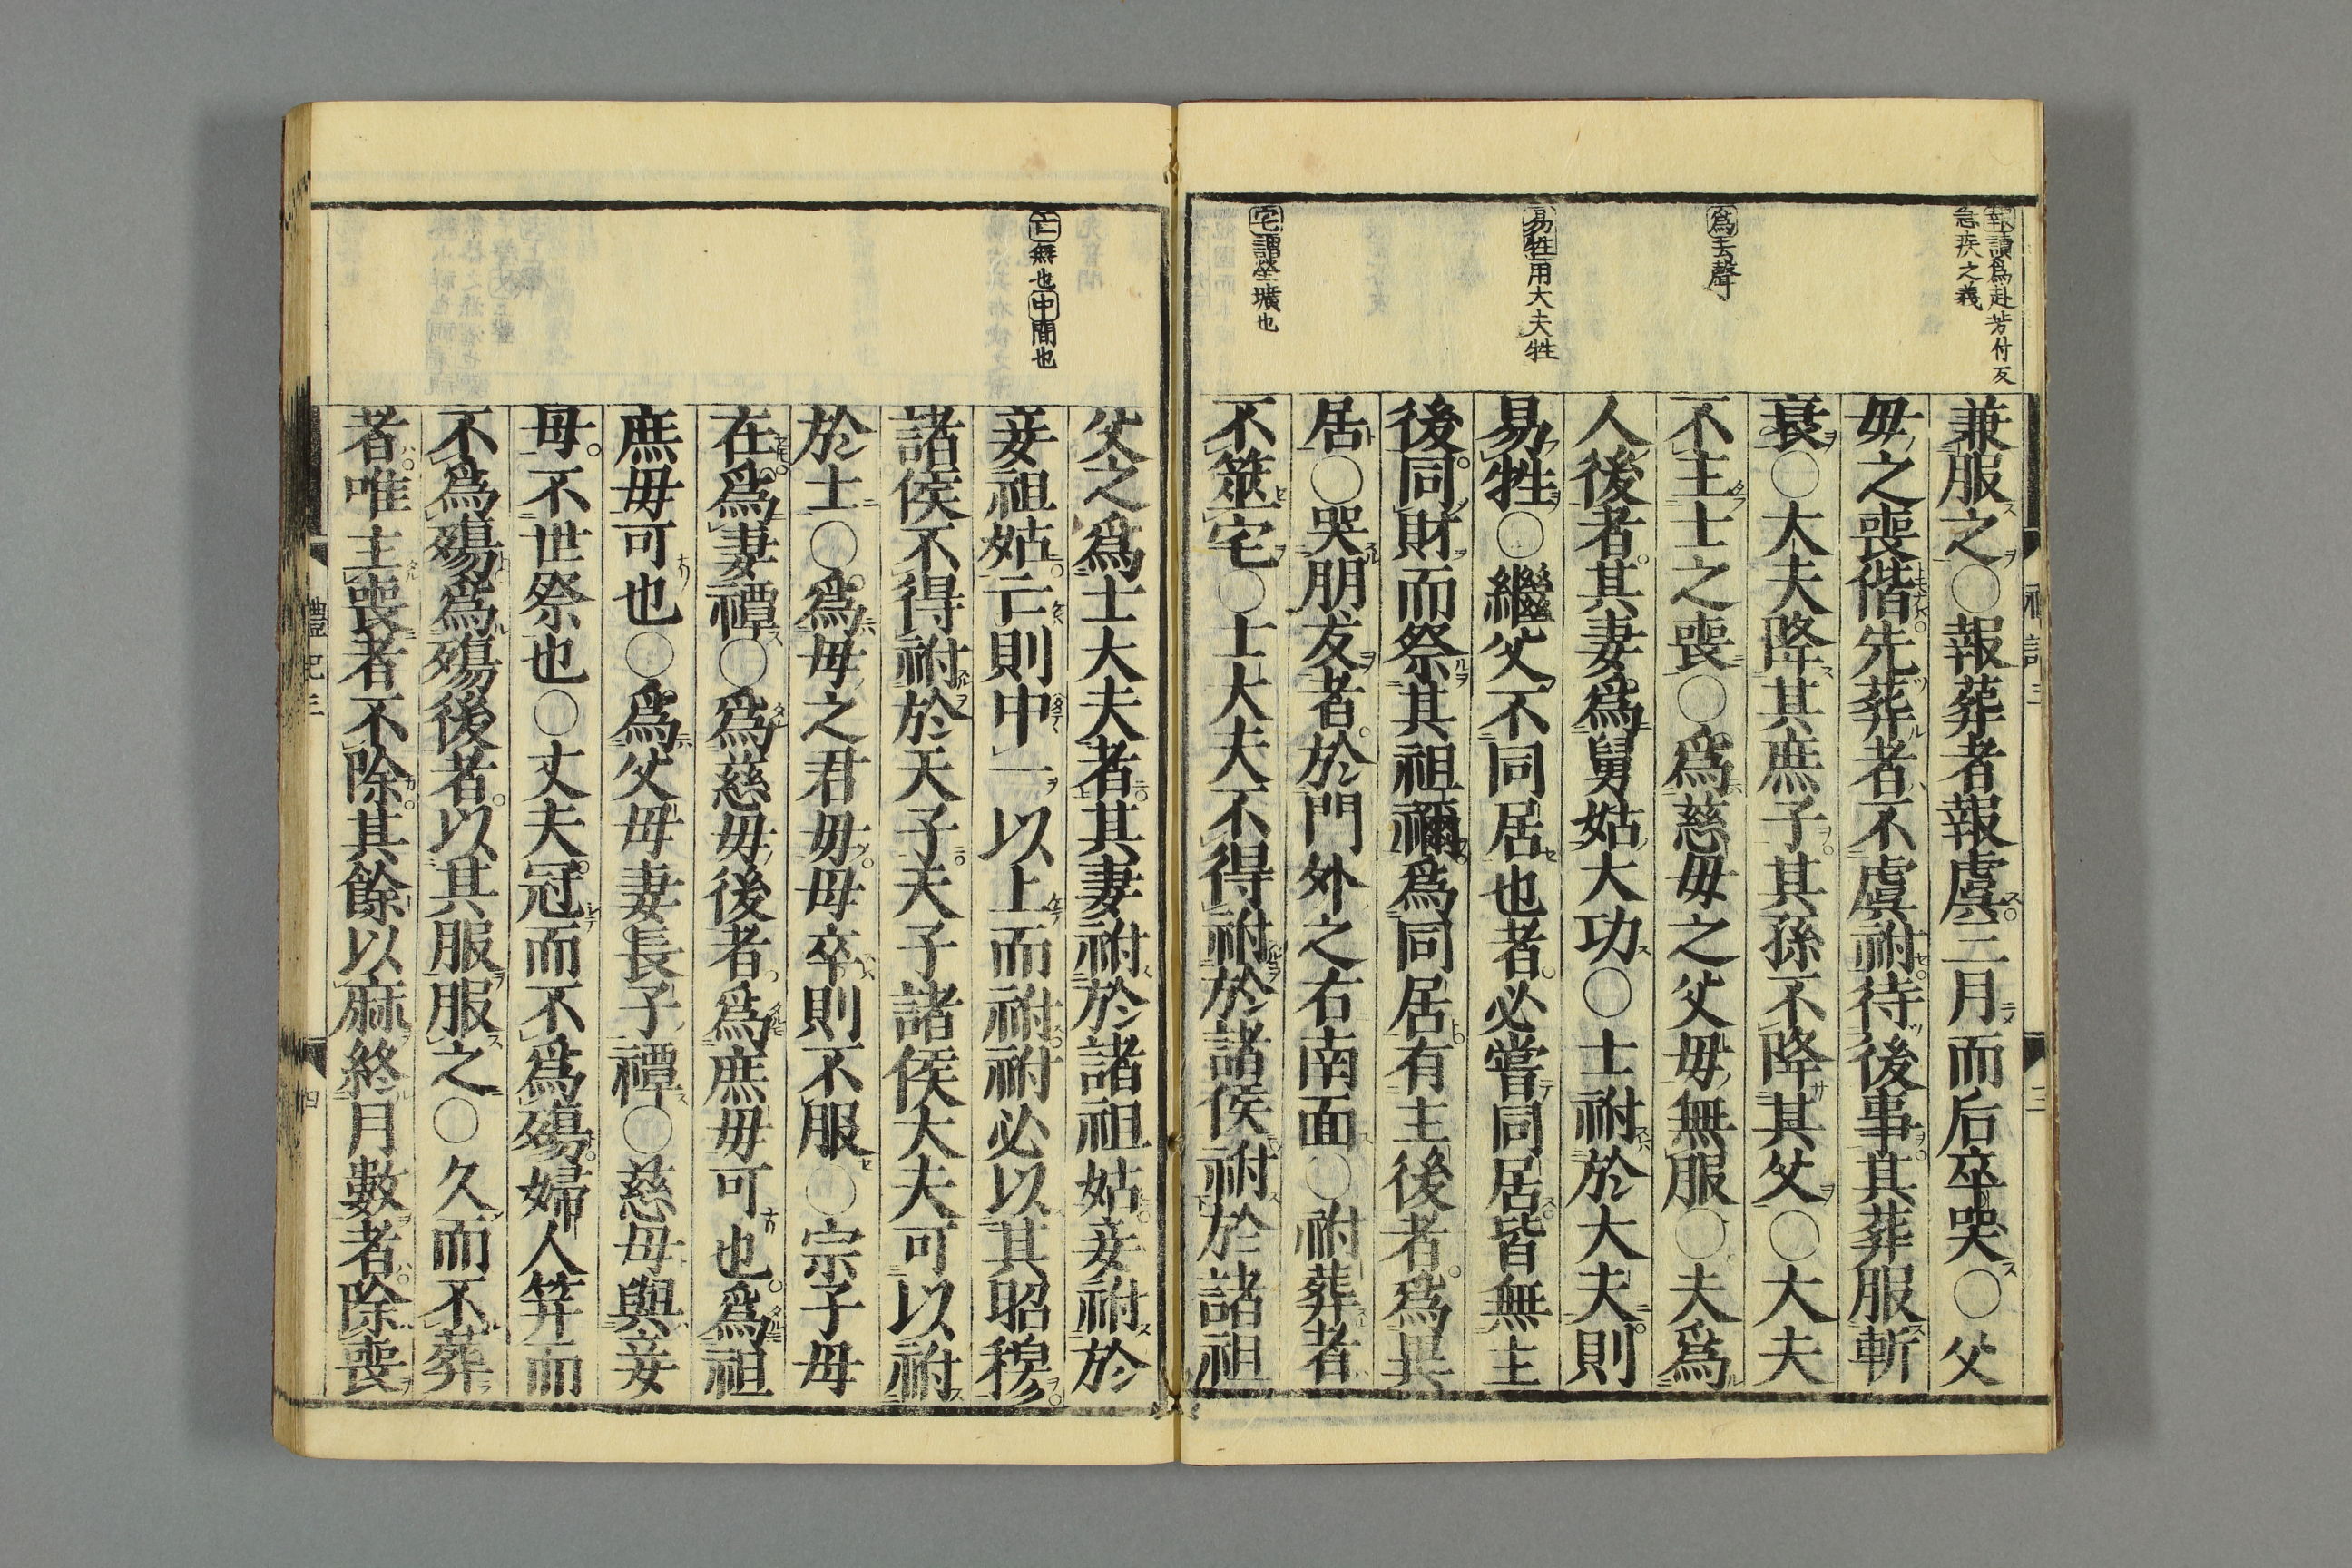 報讀爲赴芳付反
急疾之義
爲去聲
易牲用大夫牲
宅謂塋壙也
兼服之〇報葬者報虞三月而后卒哭〇父
母之喪偕先葬者不虞祔待後事其葬服斬
衰〇大夫降其庶子其孫不降其父〇大夫
不主士之喪〇爲慈母之父母無服〇夫爲
人後者其妻爲舅姑大功〇士祔於大夫則
易牲〇繼父不同居也者必嘗同居皆無主
後同財而祭其祖禰爲同居有主後者爲異
居〇哭朋友者於門外之右南面〇祔葬者
不筮宅〇士大夫不得祔於諸侯祔於諸祖
亡無也中間也
父之爲士大夫者其妻祔於諸祖姑妾祔於
妾祖姑亡則中一以上而祔祔必以其昭穆
諸侯不得祔於天子天子諸侯大夫可以祔
於士〇爲母之君母母卒則不服〇宗子母
在爲妻禫〇爲慈母後者爲庶母可也爲祖
庶母可也〇爲父母妻長子禫〇慈母與妾
母不世祭也〇丈夫冠而不爲殤婦人筓而
不爲殤爲殤後者以其服服之〇久而不葬
者唯主喪者不除其餘以麻終月數者除喪
禮記三
四